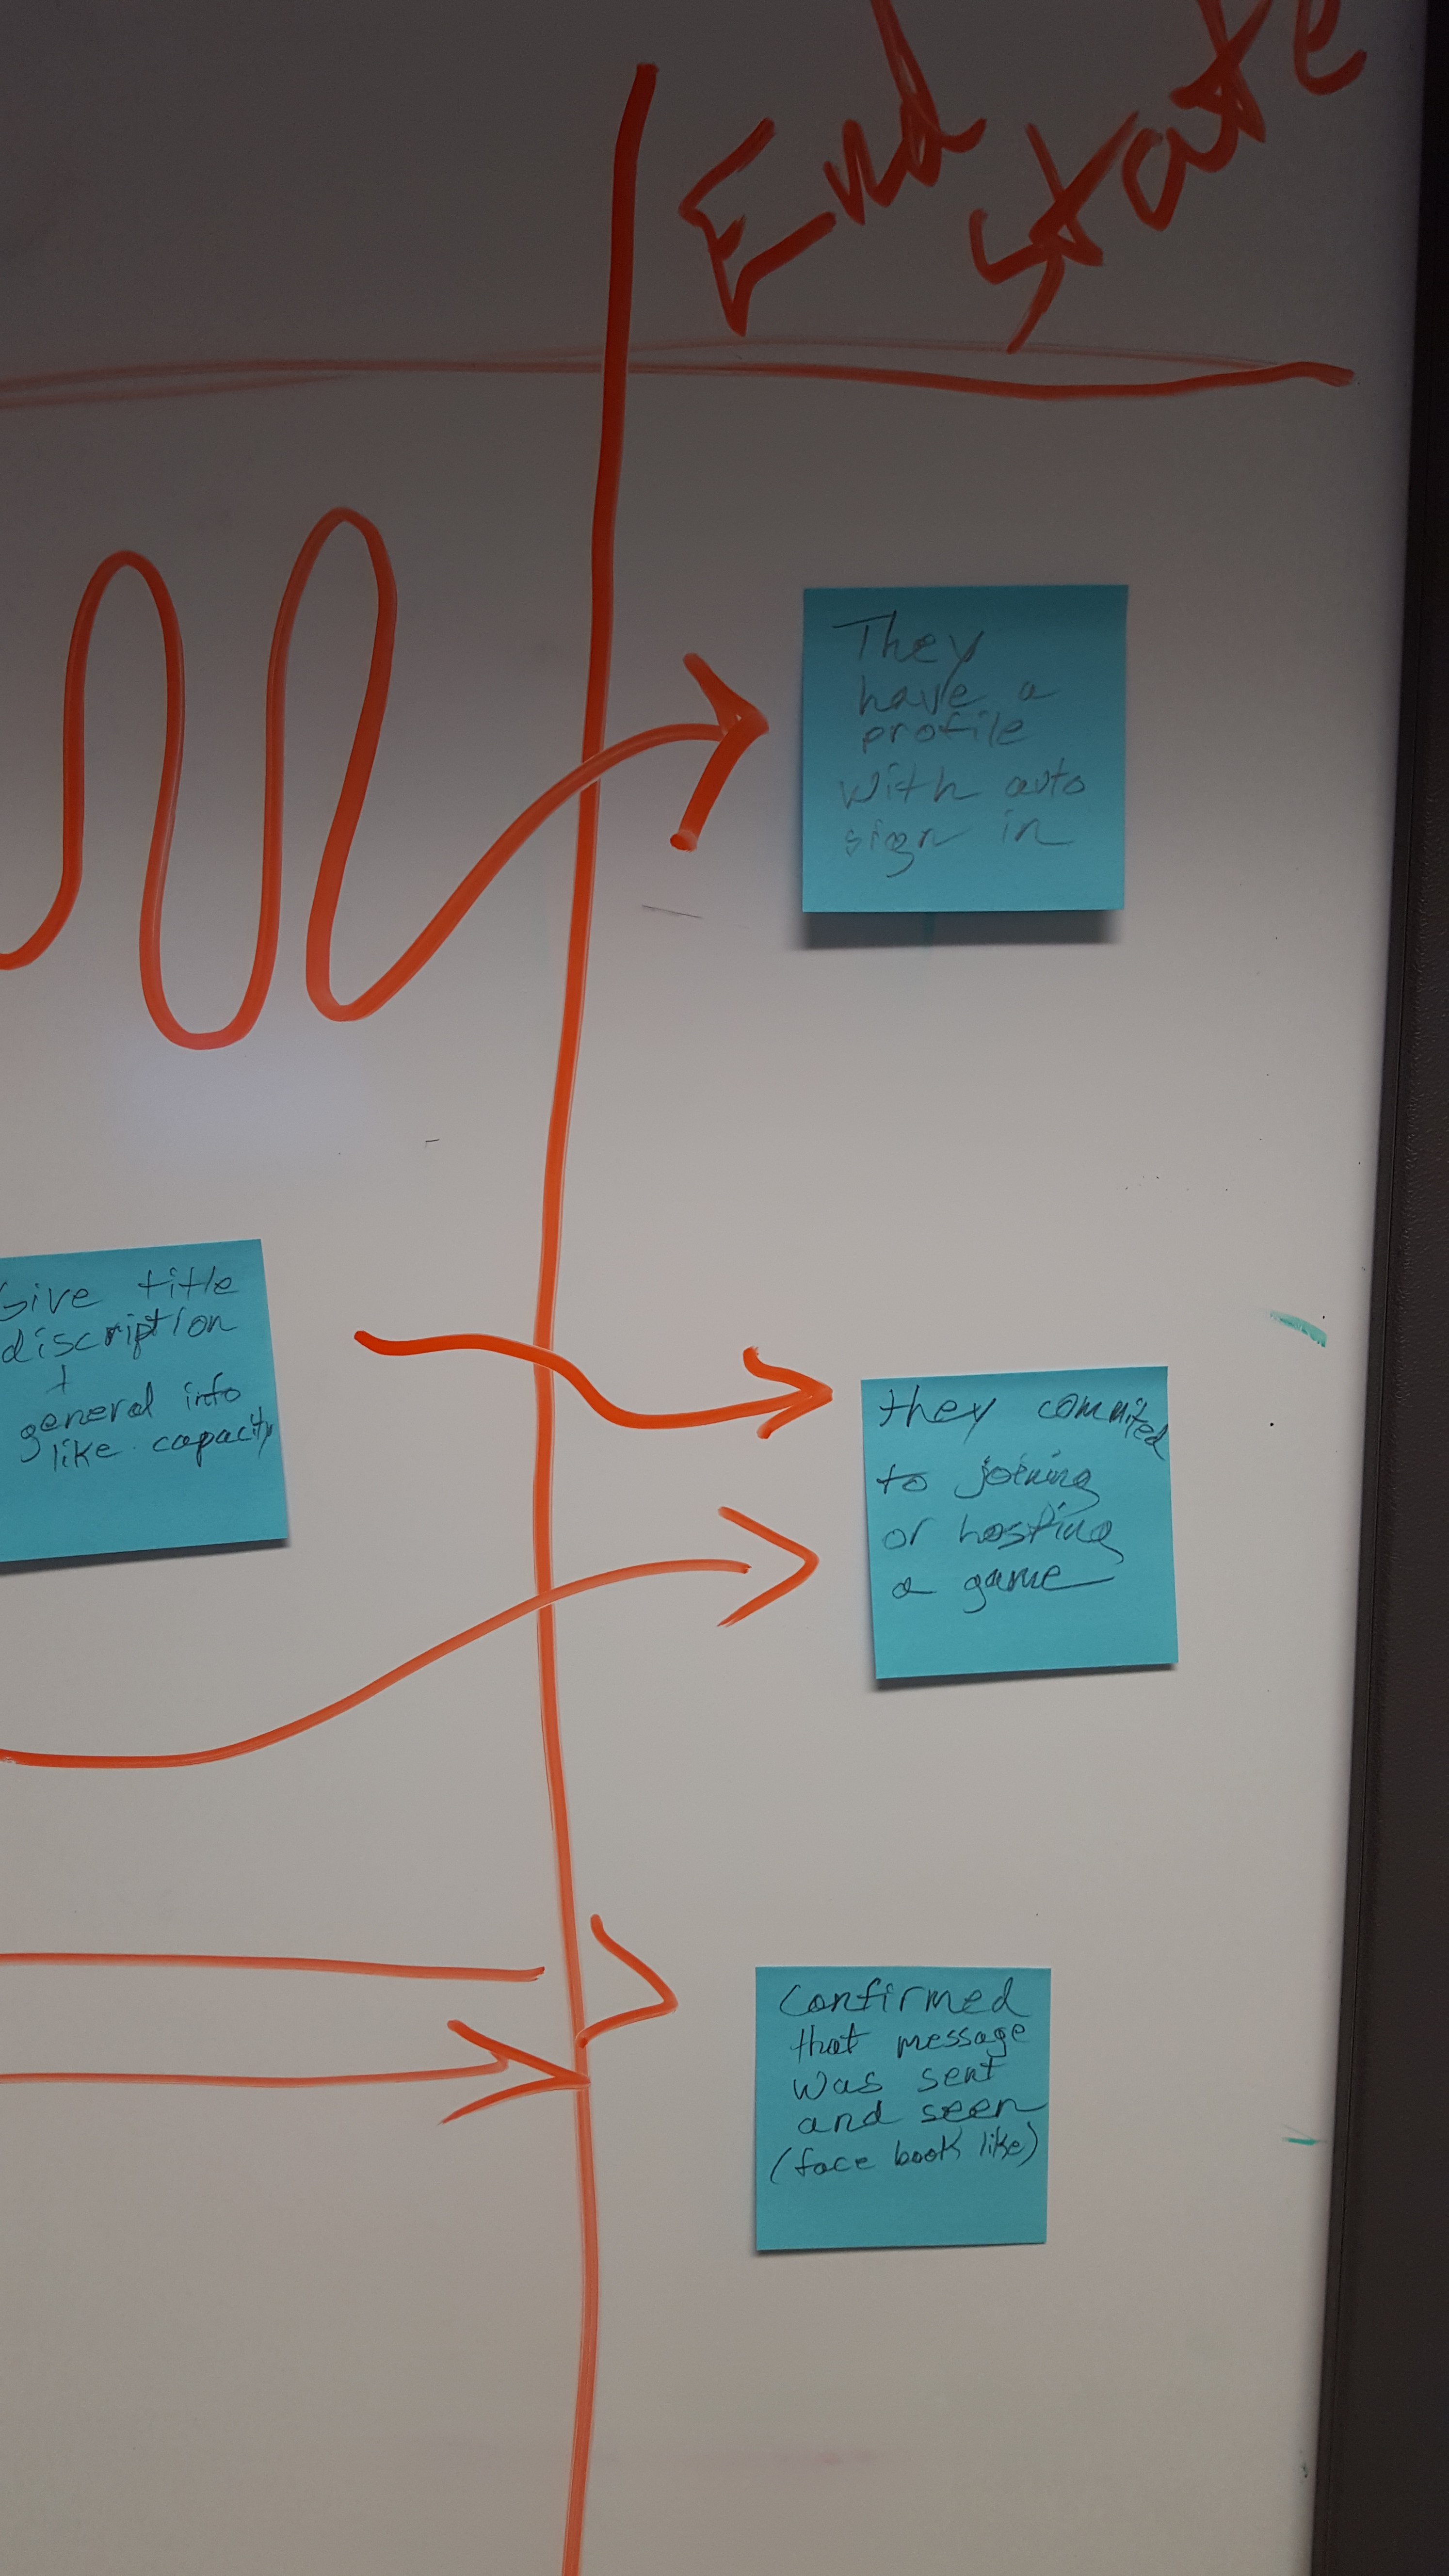 End
state
They
have a
profile
with auto
sign in
Give title
discription
+
general info
like capacity
they commited
to joining
or hosting
a game
Confirmed
that message
was sent
and seen
(face book like)